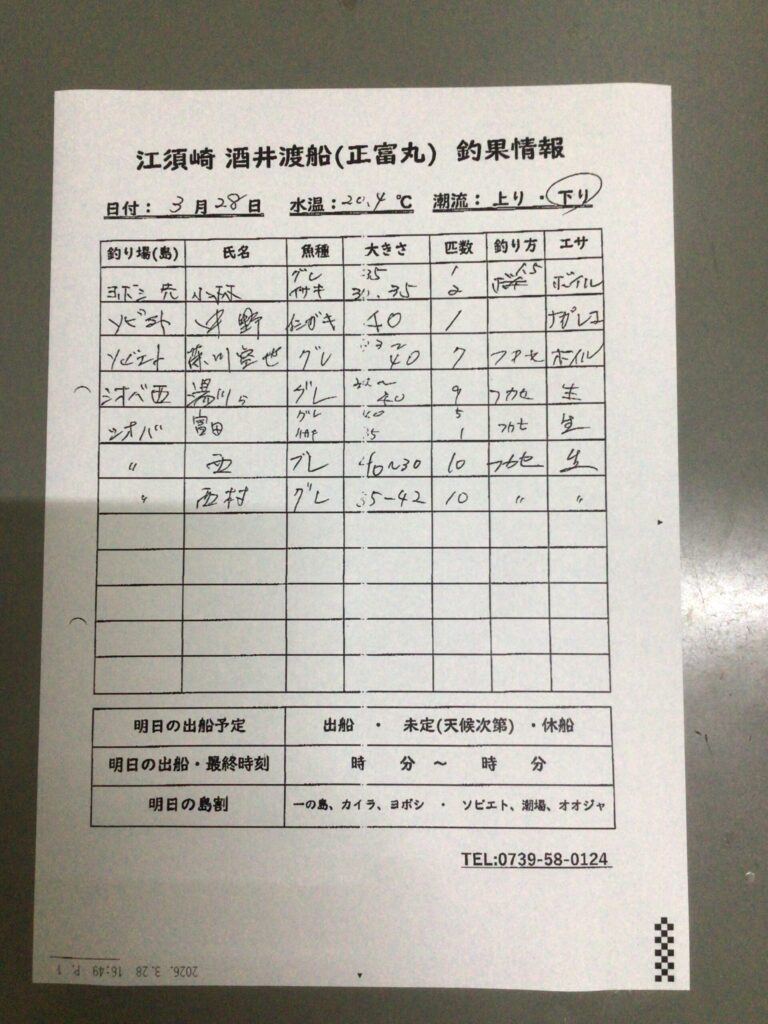 江須崎 酒井渡船(正富丸) 釣果情報
日付: 3月28日 水温:20.4℃ 潮流:上り・下り
釣り場(島) 氏名 魚種 大きさ 匹数 釣り方 エサ
グレ 35 1
ヨボシ 小林 イサキ 35 2 ボイル
ソビエト 中野 イシガキ 40 1
ソビエト グレ 40 7 フカセ ボイル
シオバ西 湯川 グレ 40 9 フカセ 生
グレ 40 5
シオバ 富田 35 1 フカセ 生
〃 西 グレ 40~30 10 フカセ 生
〃 西村 グレ 35-42 10 〃 〃
明日の出船予定 出船 ・ 未定(天候次第) ・休船
明日の出船・最終時刻 時 分 ~ 時 分
明日の島割 一の島、カイラ、ヨボシ ・ ソビエト、潮場、オオジャ
TEL:0739-58-0124
2026. 3.28 16:49 P. 1